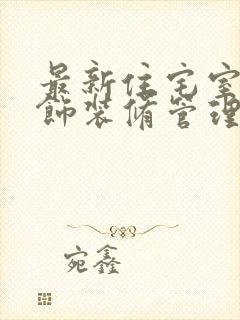 最新住宅室
饰装修管理
宛鑫